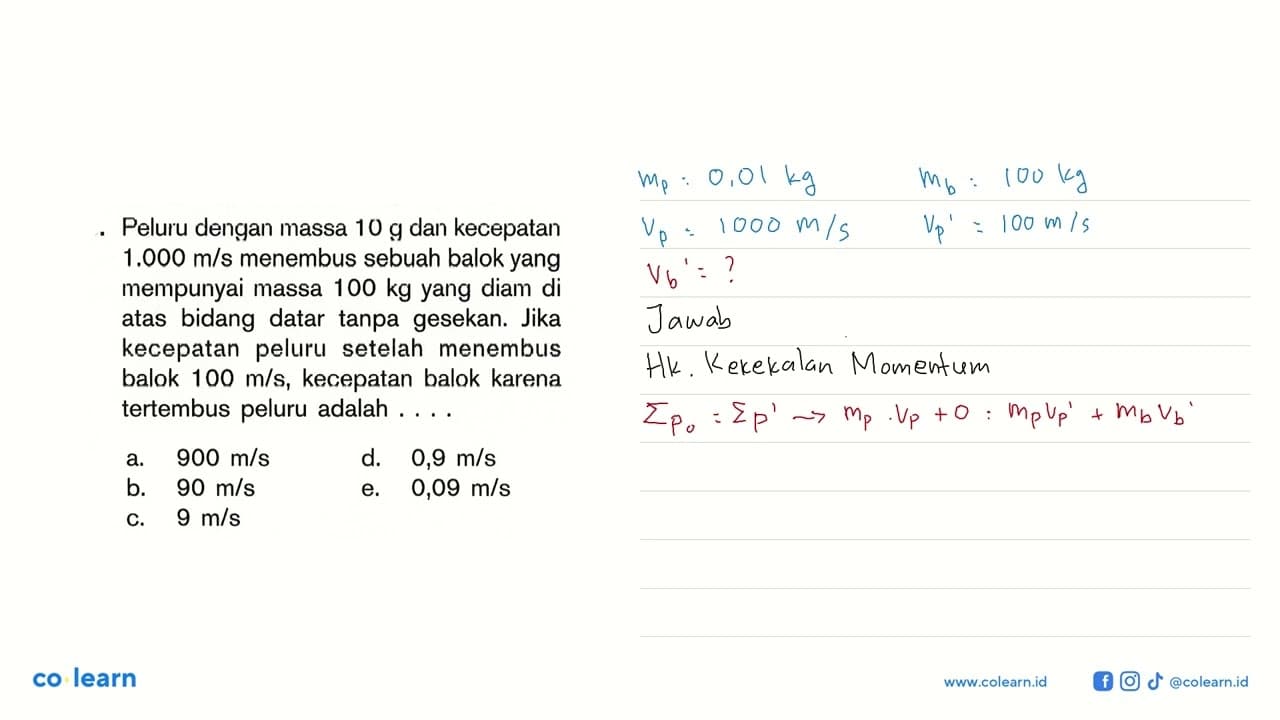 . Peluru dengan massa 10 g dan kecepatan
1.000 m/s menembus sebuah balok yang
mempunyai massa 100 kg yang diam di
atas bidang datar tanpa gesekan. Jika
kecepatan peluru setelah menembus
balok 100 m/s, kecepatan balok karena
tertembus peluru adalah . . . .
a. 900 m/s d. 0,9 m/s
b. 90 m/s e. 0,09 m/s
c. 9 m/s
mp : 0,01 kg mb : 100 kg
Vp = 1000 m/s Vp' = 100 m/s
Vb' = ?
Jawab
Hk. Kekekalan Momentum
Σp₀ = Σp' → mp . Vp + 0 : mpVp' + mbVb'
co learn
www.colearn.id @colearn.id